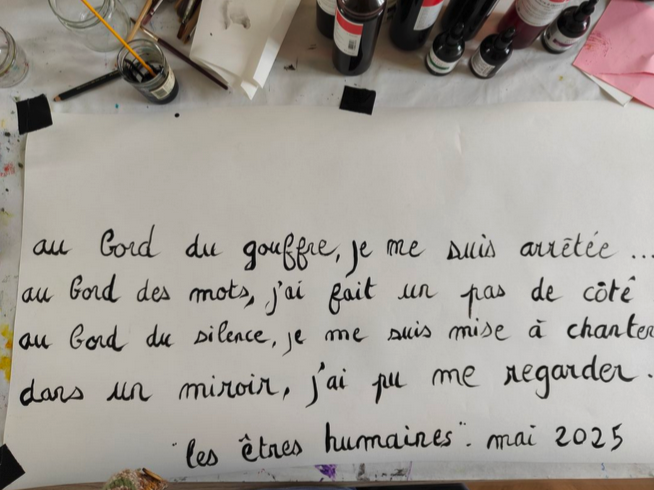 au bord du gouffre, je me suis arrêtée ...
au bord des mots, j'ai fait un pas de côté
au bord du silence, je me suis mise à chanter
dans un miroir, j'ai pu me regarder .
"les êtres humaines". mai 2025